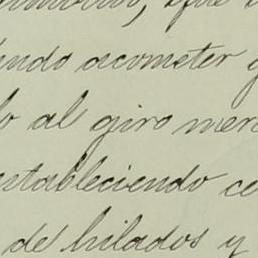 , que
endo acometer
o al giro mer
stableciendo co
de hilados y